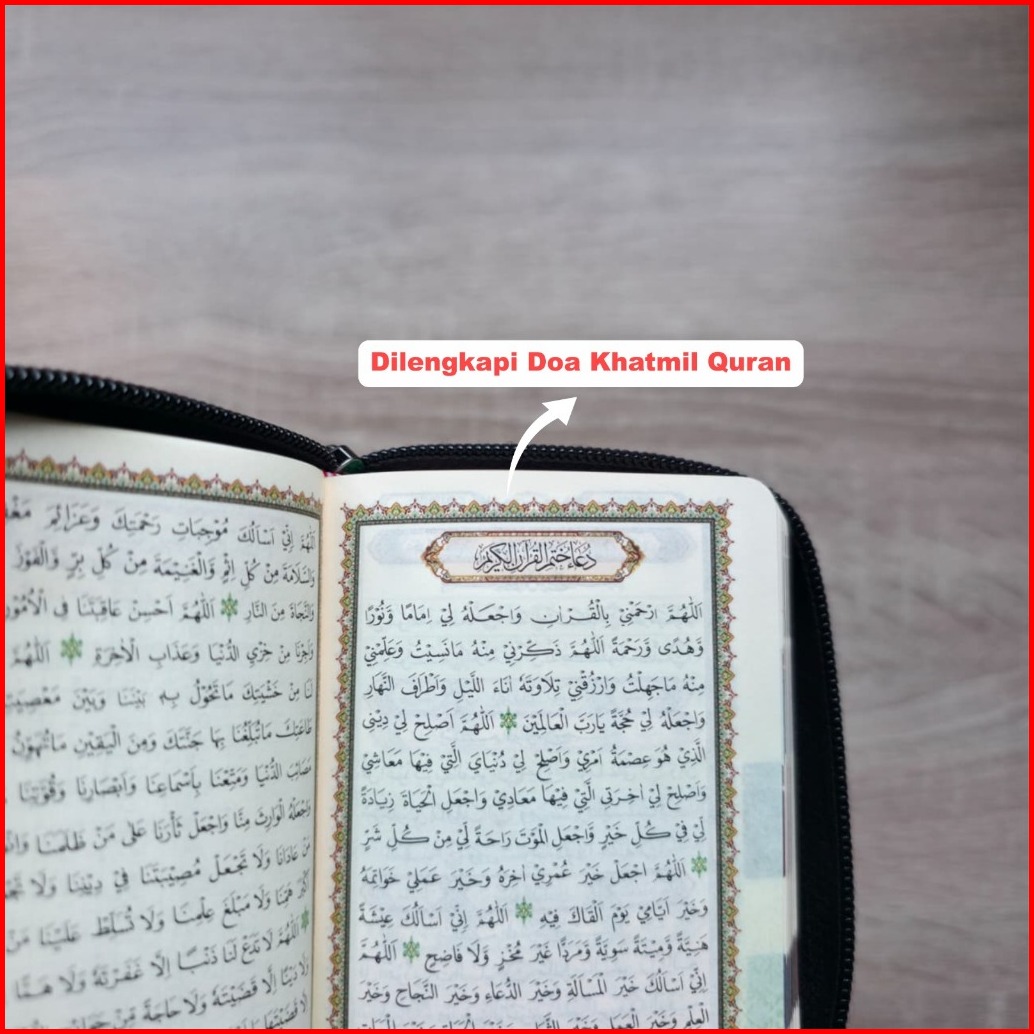 Dilengkapi Doa Khatmil Quran
دُعَاءُ خَتْمِ الْقُرْآنِ الْكَرِيْمِ
اَللّٰهُمَّ ارْحَمْنِيْ بِالْقُرْاٰنِ وَاجْعَلْهُ لِيْ اِمَامًا وَّنُوْرًا
وَّهُدًى وَّرَحْمَةً اَللّٰهُمَّ ذَكِّرْنِيْ مِنْهُ مَانَسِيْتُ وَعَلِّمْنِيْ
مِنْهُ مَاجَهِلْتُ وَارْزُقْنِيْ تِلَاوَتَهٗ اٰنَاءَ اللَّيْلِ وَاَطْرَافَ النَّهَارِ
وَاجْعَلْهُ لِيْ حُجَّةً يَارَبَّ الْعَالَمِيْنَ اَللّٰهُمَّ اَصْلِحْ لِيْ دِيْنِى
الَّذِيْ هُوَ عِصْمَةُ اَمْرِيْ وَاَصْلِحْ لِيْ دُنْيَايَ الَّتِيْ فِيْهَا مَعَاشِيْ
وَاَصْلِحْ لِيْ اٰخِرَتِى الَّتِيْ فِيْهَا مَعَادِيْ وَاجْعَلِ الْحَيَاةَ زِيَادَةً
لِيْ فِيْ كُلِّ خَيْرٍ وَّاجْعَلِ الْمَوْتَ رَاحَةً لِيْ مِنْ كُلِّ شَرٍّ
اَللّٰهُمَّ اجْعَلْ خَيْرَ عُمْرِيْ اٰخِرَهُ وَخَيْرَ عَمَلِيْ خَوَاتِمَهُ
وَخَيْرَ اَيَّامِيْ يَوْمَ اَلْقَاكَ فِيْهِ اَللّٰهُمَّ اِنِّيْ اَسْأَلُكَ عِيْشَةً
هَنِيَّةً وَّمِيْتَةً سَوِيَّةً وَّمَرَدًّا غَيْرَ مُخْزٍ وَّلَا فَاضِحٍ اَللّٰهُمَّ
اِنِّيْ اَسْأَلُكَ خَيْرَ الْمَسْأَلَةِ وَخَيْرَ الدُّعَاءِ وَخَيْرَ النَّجَاحِ وَخَيْرَ
الْعِلْمِ وَخَيْرَ الْعَمَلِ وَخَيْرَ
اَللّٰهُمَّ اِنِّيْ اَسْأَلُكَ مُوْجِبَاتِ رَحْمَتِكَ وَعَزَائِمَ
وَالسَّلَامَةَ مِنْ كُلِّ اِثْمٍ وَالْغَنِيْمَةَ مِنْ كُلِّ بِرٍّ وَالْفَوْزَ
وَالنَّجَاةَ مِنَ النَّارِ اَللّٰهُمَّ اَحْسِنْ عَاقِبَتَنَا فِى الْاُمُوْرِ
وَاَجِرْنَا مِنْ خِزْيِ الدُّنْيَا وَعَذَابِ الْاٰخِرَةِ اَللّٰهُمَّ
لَنَا مِنْ خَشْيَتِكَ مَاتَحُوْلُ بِهٖ بَيْنَنَا وَبَيْنَ مَعْصِيَتِ
طَاعَتِكَ مَاتُبَلِّغُنَا بِهَا جَنَّتَكَ وَمِنَ الْيَقِيْنِ مَاتُهَوِّنُ
مَصَائِبَ الدُّنْيَا وَمَتِّعْنَا بِاَسْمَاعِنَا وَاَبْصَارِنَا وَقُوَّتِنَا
وَاجْعَلْهُ الْوَارِثَ مِنَّا وَاجْعَلْ ثَأْرَنَا عَلٰى مَنْ ظَلَمَنَا
مَنْ عَادَانَا وَلَا تَجْعَلْ مُصِيْبَتَنَا فِيْ دِيْنِنَا وَلَا
هَمِّنَا وَلَا مَبْلَغَ عِلْمِنَا وَلَا تُسَلِّطْ عَلَيْنَا مَنْ
اَللّٰهُمَّ لَا تَدَعْ لَنَا ذَنْبًا اِلَّا غَفَرْتَهٗ وَلَا هَمًّا
وَلَا دَيْنًا اِلَّا قَضَيْتَهٗ وَلَا حَاجَةً مِّنْ